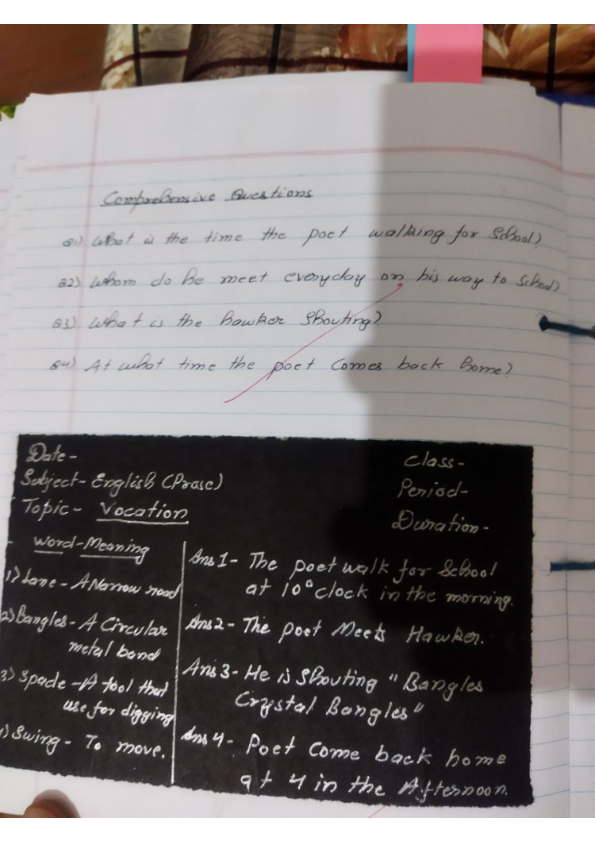 Comprehensive Questions
Q1) What is the time the poet walking for School?
Q2) Whom do he meet everyday on his way to School?
Q3) What is the hawker Shouting?
Q4) At what time the poet Comes back home?
Date-
Subject- English (Prose)
Topic- Vocation
Class-
Period-
Duration-
Word-Meaning
1) Lane - A Narrow road
2) Bangles - A Circular
metal band
3) Spade - A tool that
use for digging
) Swing - To move.
Ans 1 - The poet walk for School
at 10 o'clock in the morning.
Ans 2 - The poet Meets Hawker.
Ans 3 - He is Shouting "Bangles
Crystal Bangles"
Ans 4 - Poet Come back home
at 4 in the Afternoon.